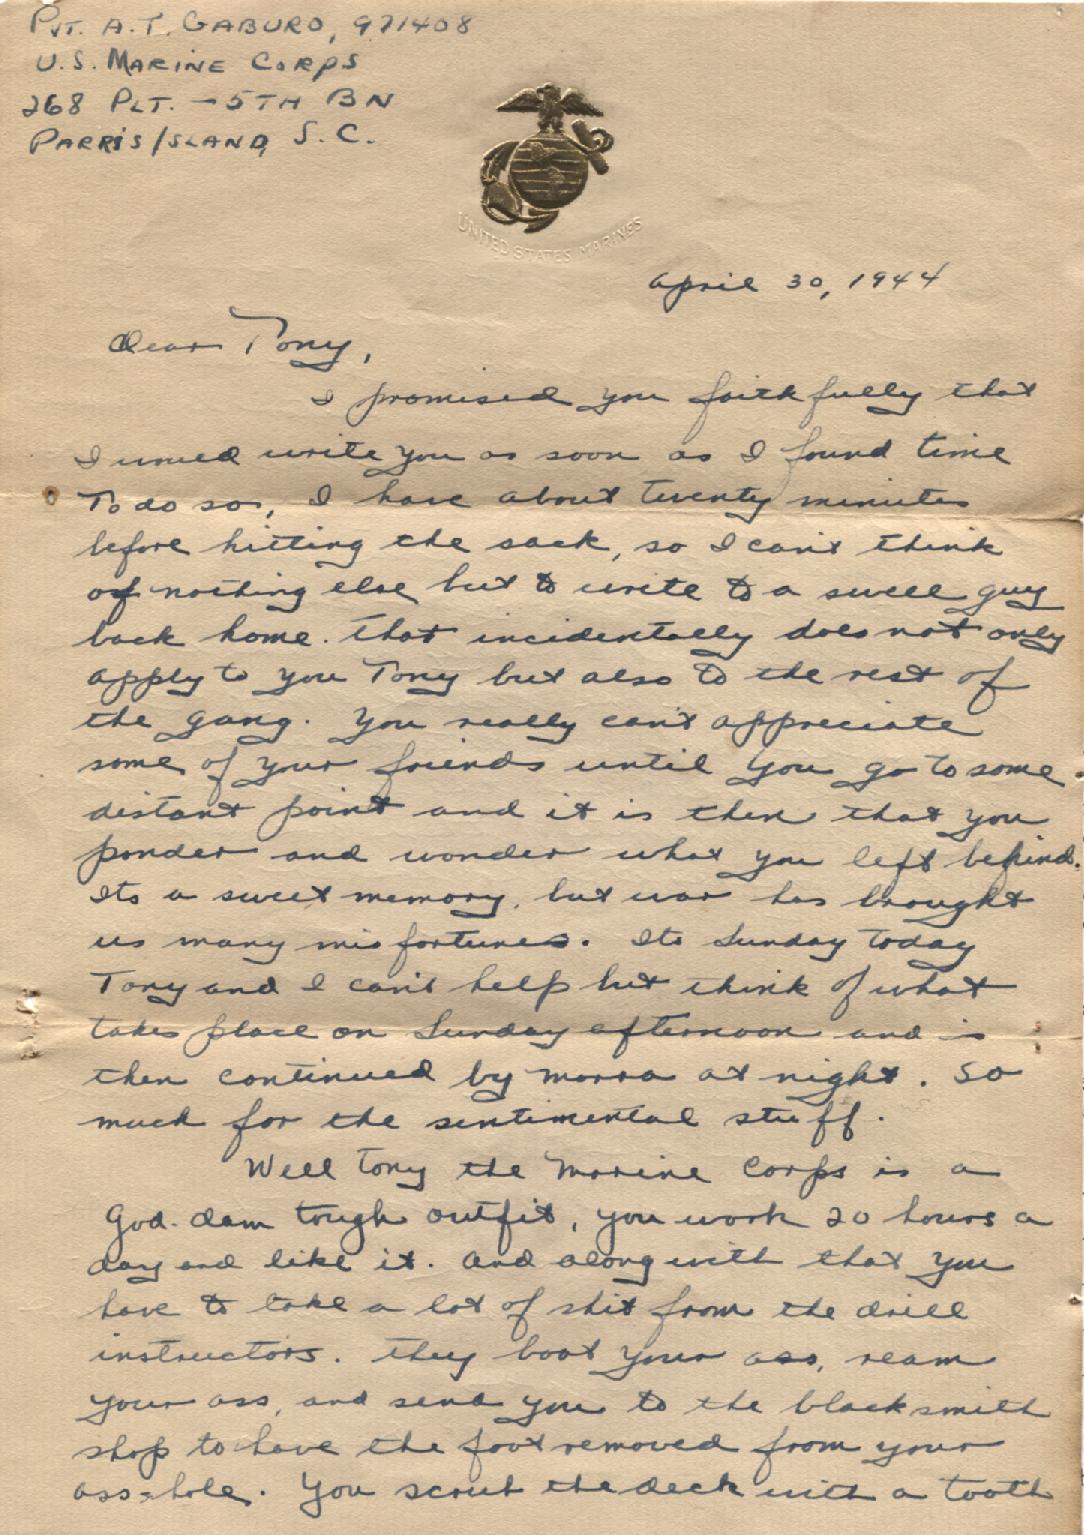 Pvt. A.T. Gaburo, 971408
U.S. Marine Corps
268 Plt. - 5th Bn
Parris Island, S.C.
UNITED STATES MARINES
April 30, 1944
Dear Tony,
I promised you faithfully that
I would write you as soon as I found time
To do so, I have about twenty minutes
before hitting the sack, so I can't think
of nothing else but to write to a swell guy
back home. That incidentally does not only
apply to you Tony but also to the rest of
the gang. You really can't appreciate
some of your friends until you go to some
distant point and it is then that you
ponder and wonder what you left behind.
Its a sweet memory, but war has brought
us many misfortunes. Its Sunday today
Tony and I can't help but think of what
takes place on Sunday afternoon and is
then continued by morra at night. So
much for the sentimental stuff.
Well Tony the Marine Corps is a
God-dam tough outfit, you work 20 hours a
day and like it. And along with that you
have to take a lot of shit from the drill
instructors. They boot your ass, ream
your ass, and send you to the blacksmith
shop to have the foot removed from your
ass-hole. You scrub the deck with a tooth